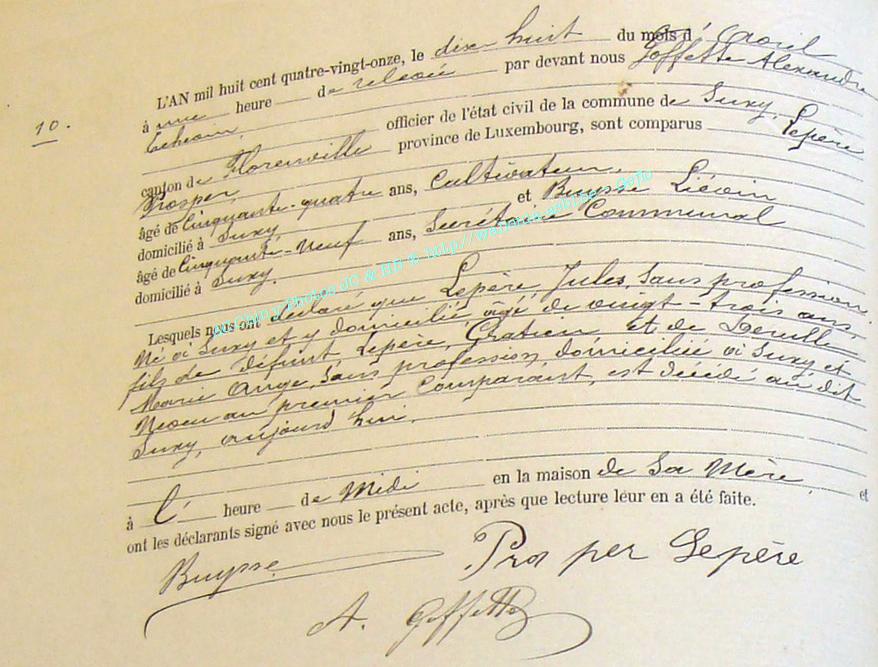 10.
L'AN mil huit cent quatre-vingt-onze, le dix huit du mois d' Avril
à une heure de relevée par devant nous Goffette Alexandre
Echevin, officier de l'état civil de la commune de Suxy,
canton de Florenville province de Luxembourg, sont comparus Lepère
Prosper
âgé de Cinquante-quatre ans, Cultivateur,
domicilié à Suxy et Buysse Liévin
âgé de Cinquante-Neuf ans, Secrétaire Communal
domicilié à Suxy.
Lesquels nous ont déclaré que Lepère, Jules, Sans profession
Né à Suxy et y domicilié âgé de vingt-trois ans,
fils de défunt Lepère, Gratien et de
Marie Ange, Sans profession, domiciliée à Suxy et
Neveu au premier Comparaist, est décédé au dit
Suxy, aujourd'hui.
à l' heure de Midi en la maison de Sa Mère, et
ont les déclarants signé avec nous le présent acte, après que lecture leur en a été faite.
Buysse Prosper Lepère
A. Goffette